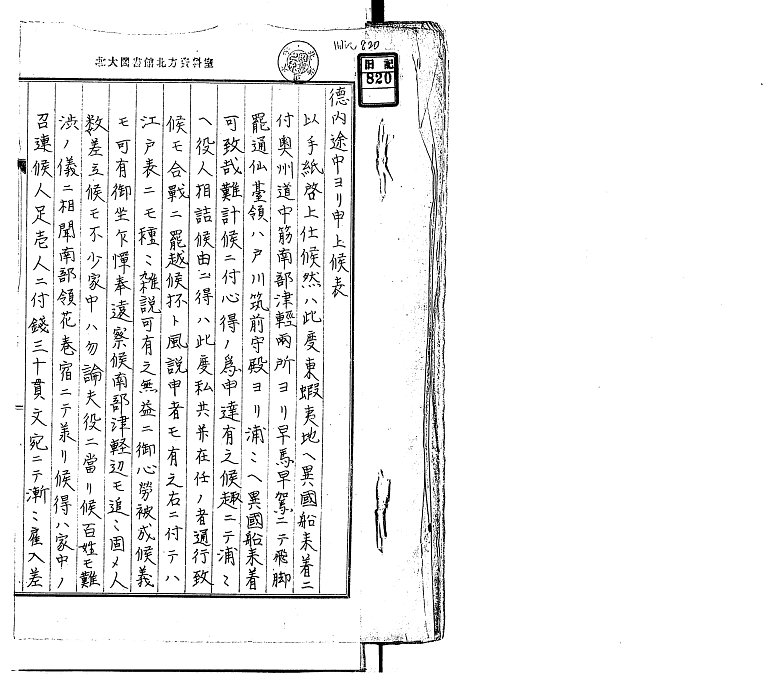 北大図書館北方資料室
旧記
820
820
徳内途中ヨリ申上候表
以手紙啓上仕候然ハ此度東蝦夷地ヘ異國船来着ニ
付奥州道中筋南部津輕兩所ヨリ早馬早駕ニテ飛脚
罷通仙臺領ハ戸川筑前守殿ヨリ浦ミヘ異國船来着
可致哉難計候ニ付心得ノ為申達有之候趣ニテ浦ミ
ヘ役人相詰候由ニ得ハ此度私共并在任ノ者通行致
候モ合戰ニ罷越候抔ト風説申者モ有之右ニ付テハ
江戸表ニモ種ミ雑説可有之無益ニ御心勞被成候義
モ可有御坐乍憚奉遠察候南部津軽辺モ追ミ固メ人
数差立候モ不少家中ハ勿論夫役ニ當リ候百姓モ難
渋ノ儀ニ相聞南部領花巻宿ニテ承リ候得ハ家中ノ
召連候人足壱人ニ付錢三十貫文宛ニテ漸ミ雇入差